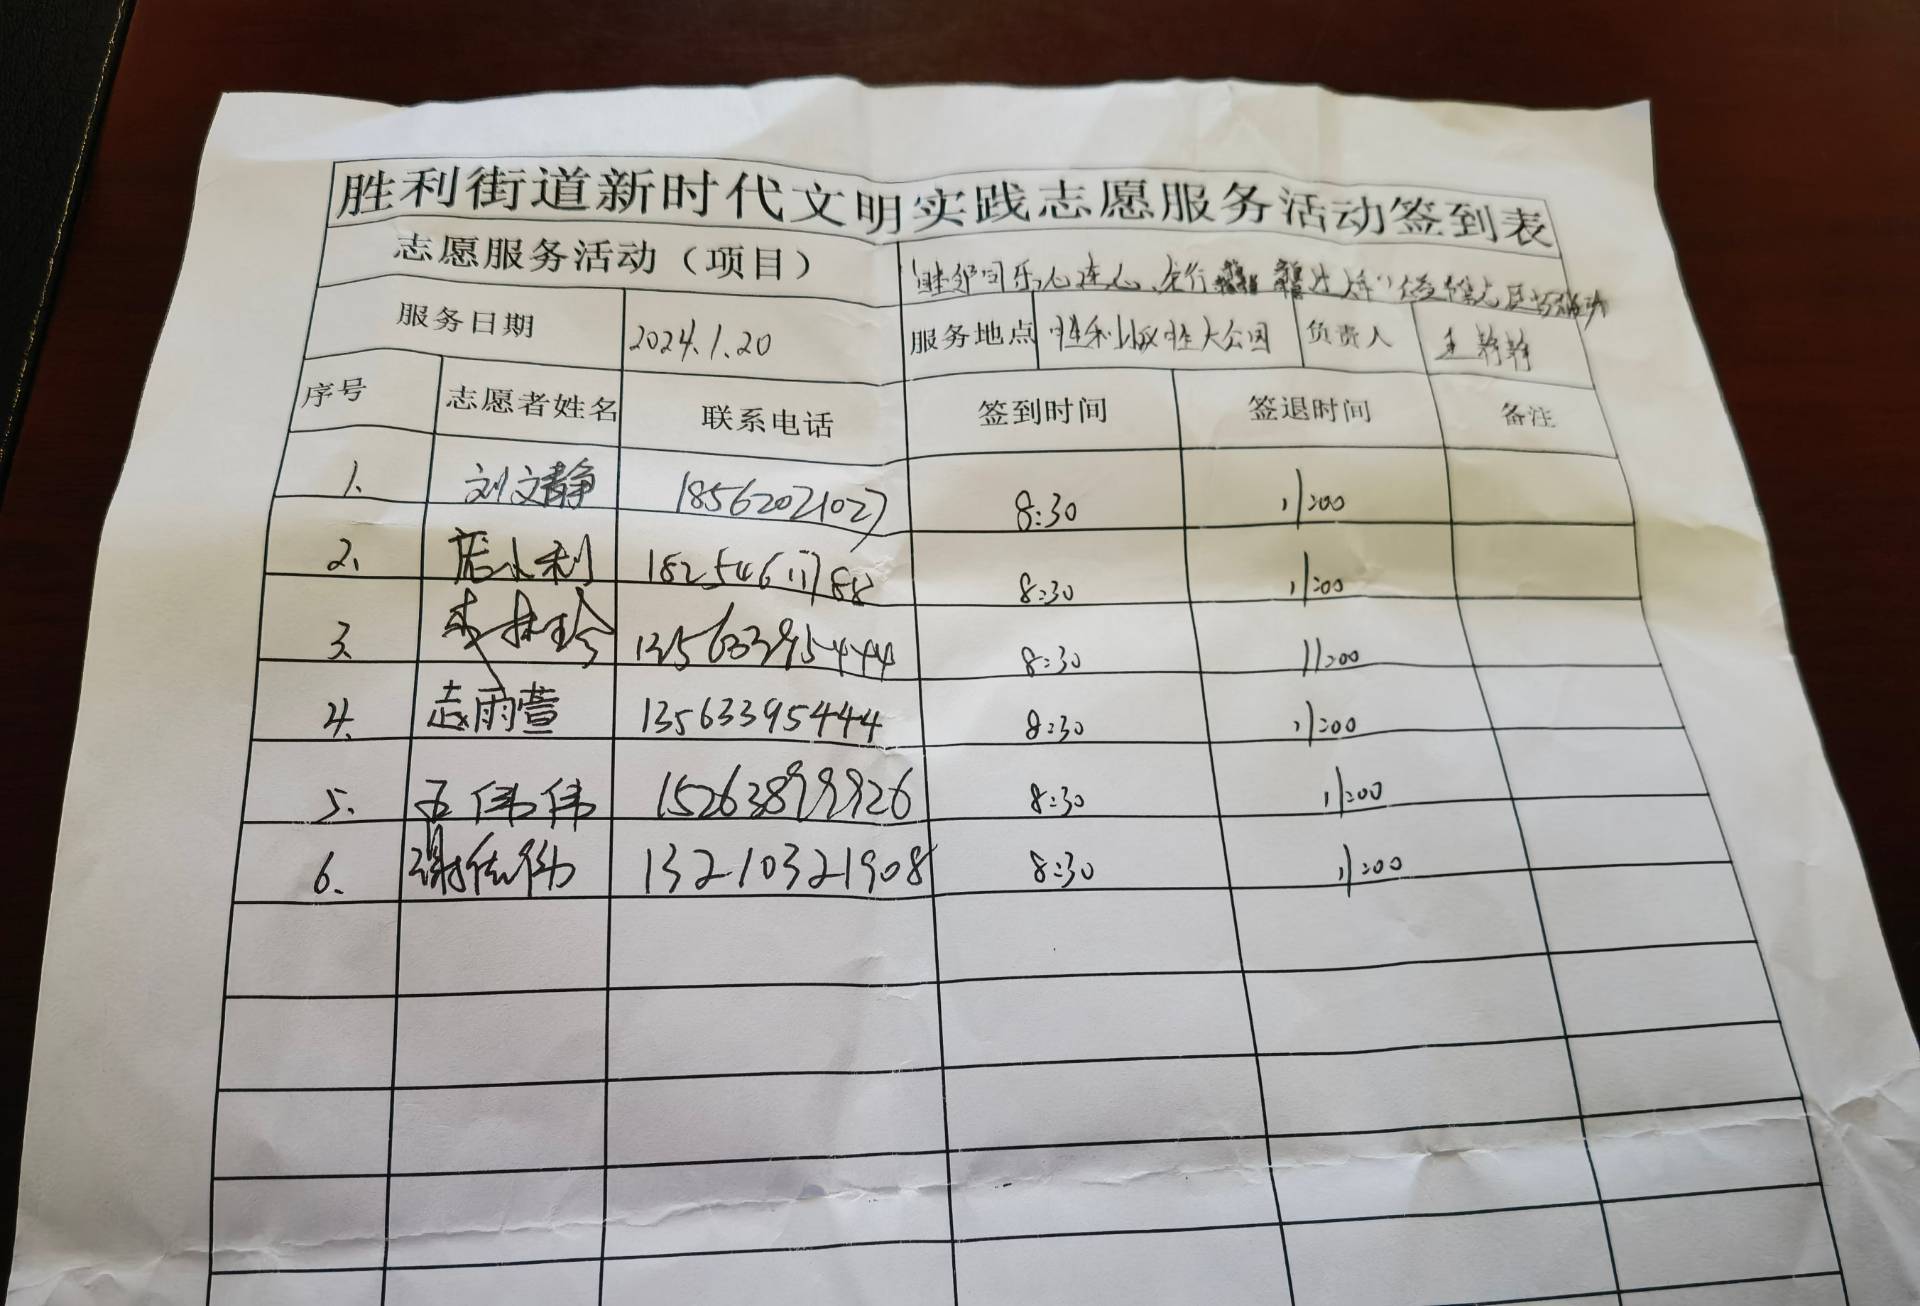 胜利街道新时代文明实践志愿服务活动签到表
志愿服务活动（项目）
服务日期 2024.1.20 服务地点 胜利 大公园 负责人 王静静
序号 志愿者姓名 联系电话 签到时间 签退时间 备注
1、 刘文静 18562021027 8:30 11:00
2、 18254611788 8:30 11:00
3、 13563395444 8:30 11:00
4、 雨萱 13563395444 8:30 11:00
5、 王伟伟 15263899926 8:30 11:00
6、 谢 13210321908 8:30 11:00